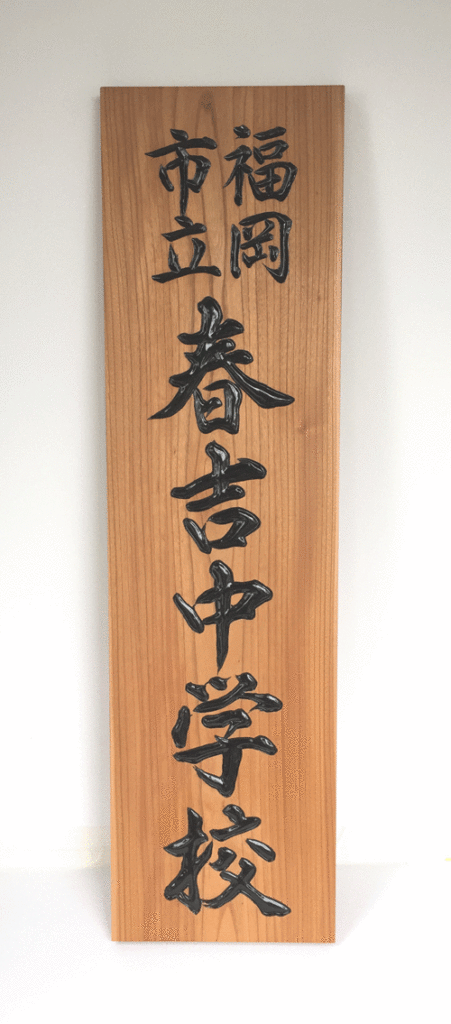 福岡
市立
春吉中学校